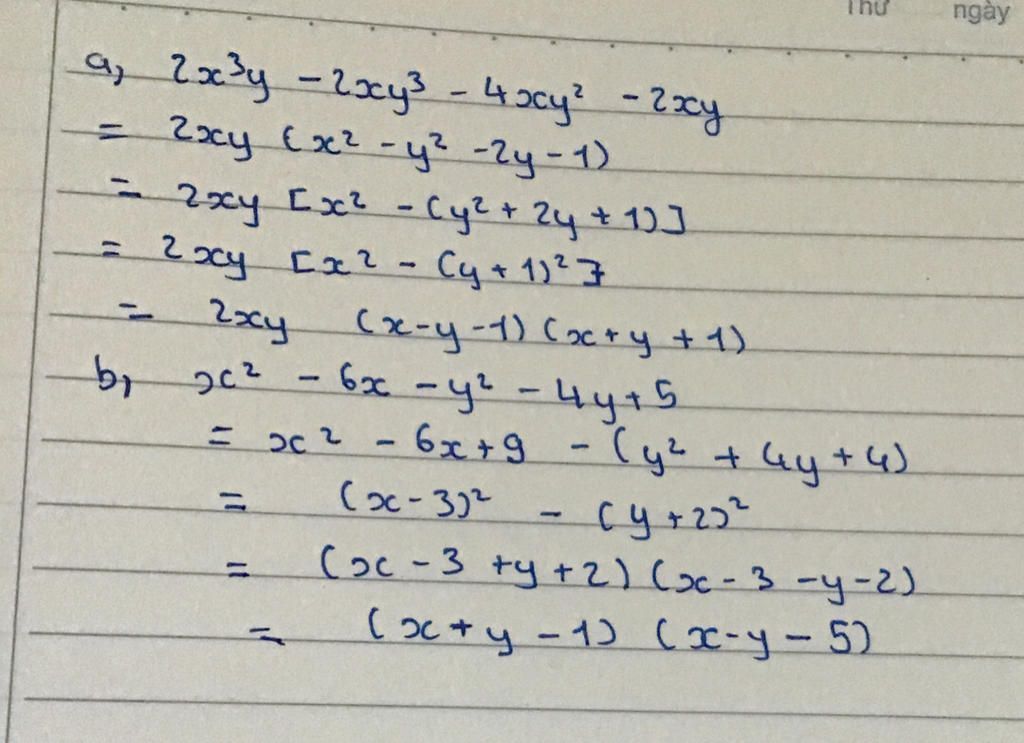 Thứ ngày
a, 2x³y - 2xy³ - 4xy² - 2xy
= 2xy (x² - y² - 2y - 1)
= 2xy [x² - (y² + 2y + 1)]
= 2xy [x² - (y + 1)²]
= 2xy (x - y - 1) (x + y + 1)
b, x² - 6x - y² - 4y + 5
= x² - 6x + 9 - (y² + 4y + 4)
= (x - 3)² - (y + 2)²
= (x - 3 + y + 2) (x - 3 - y - 2)
= (x + y - 1) (x - y - 5)